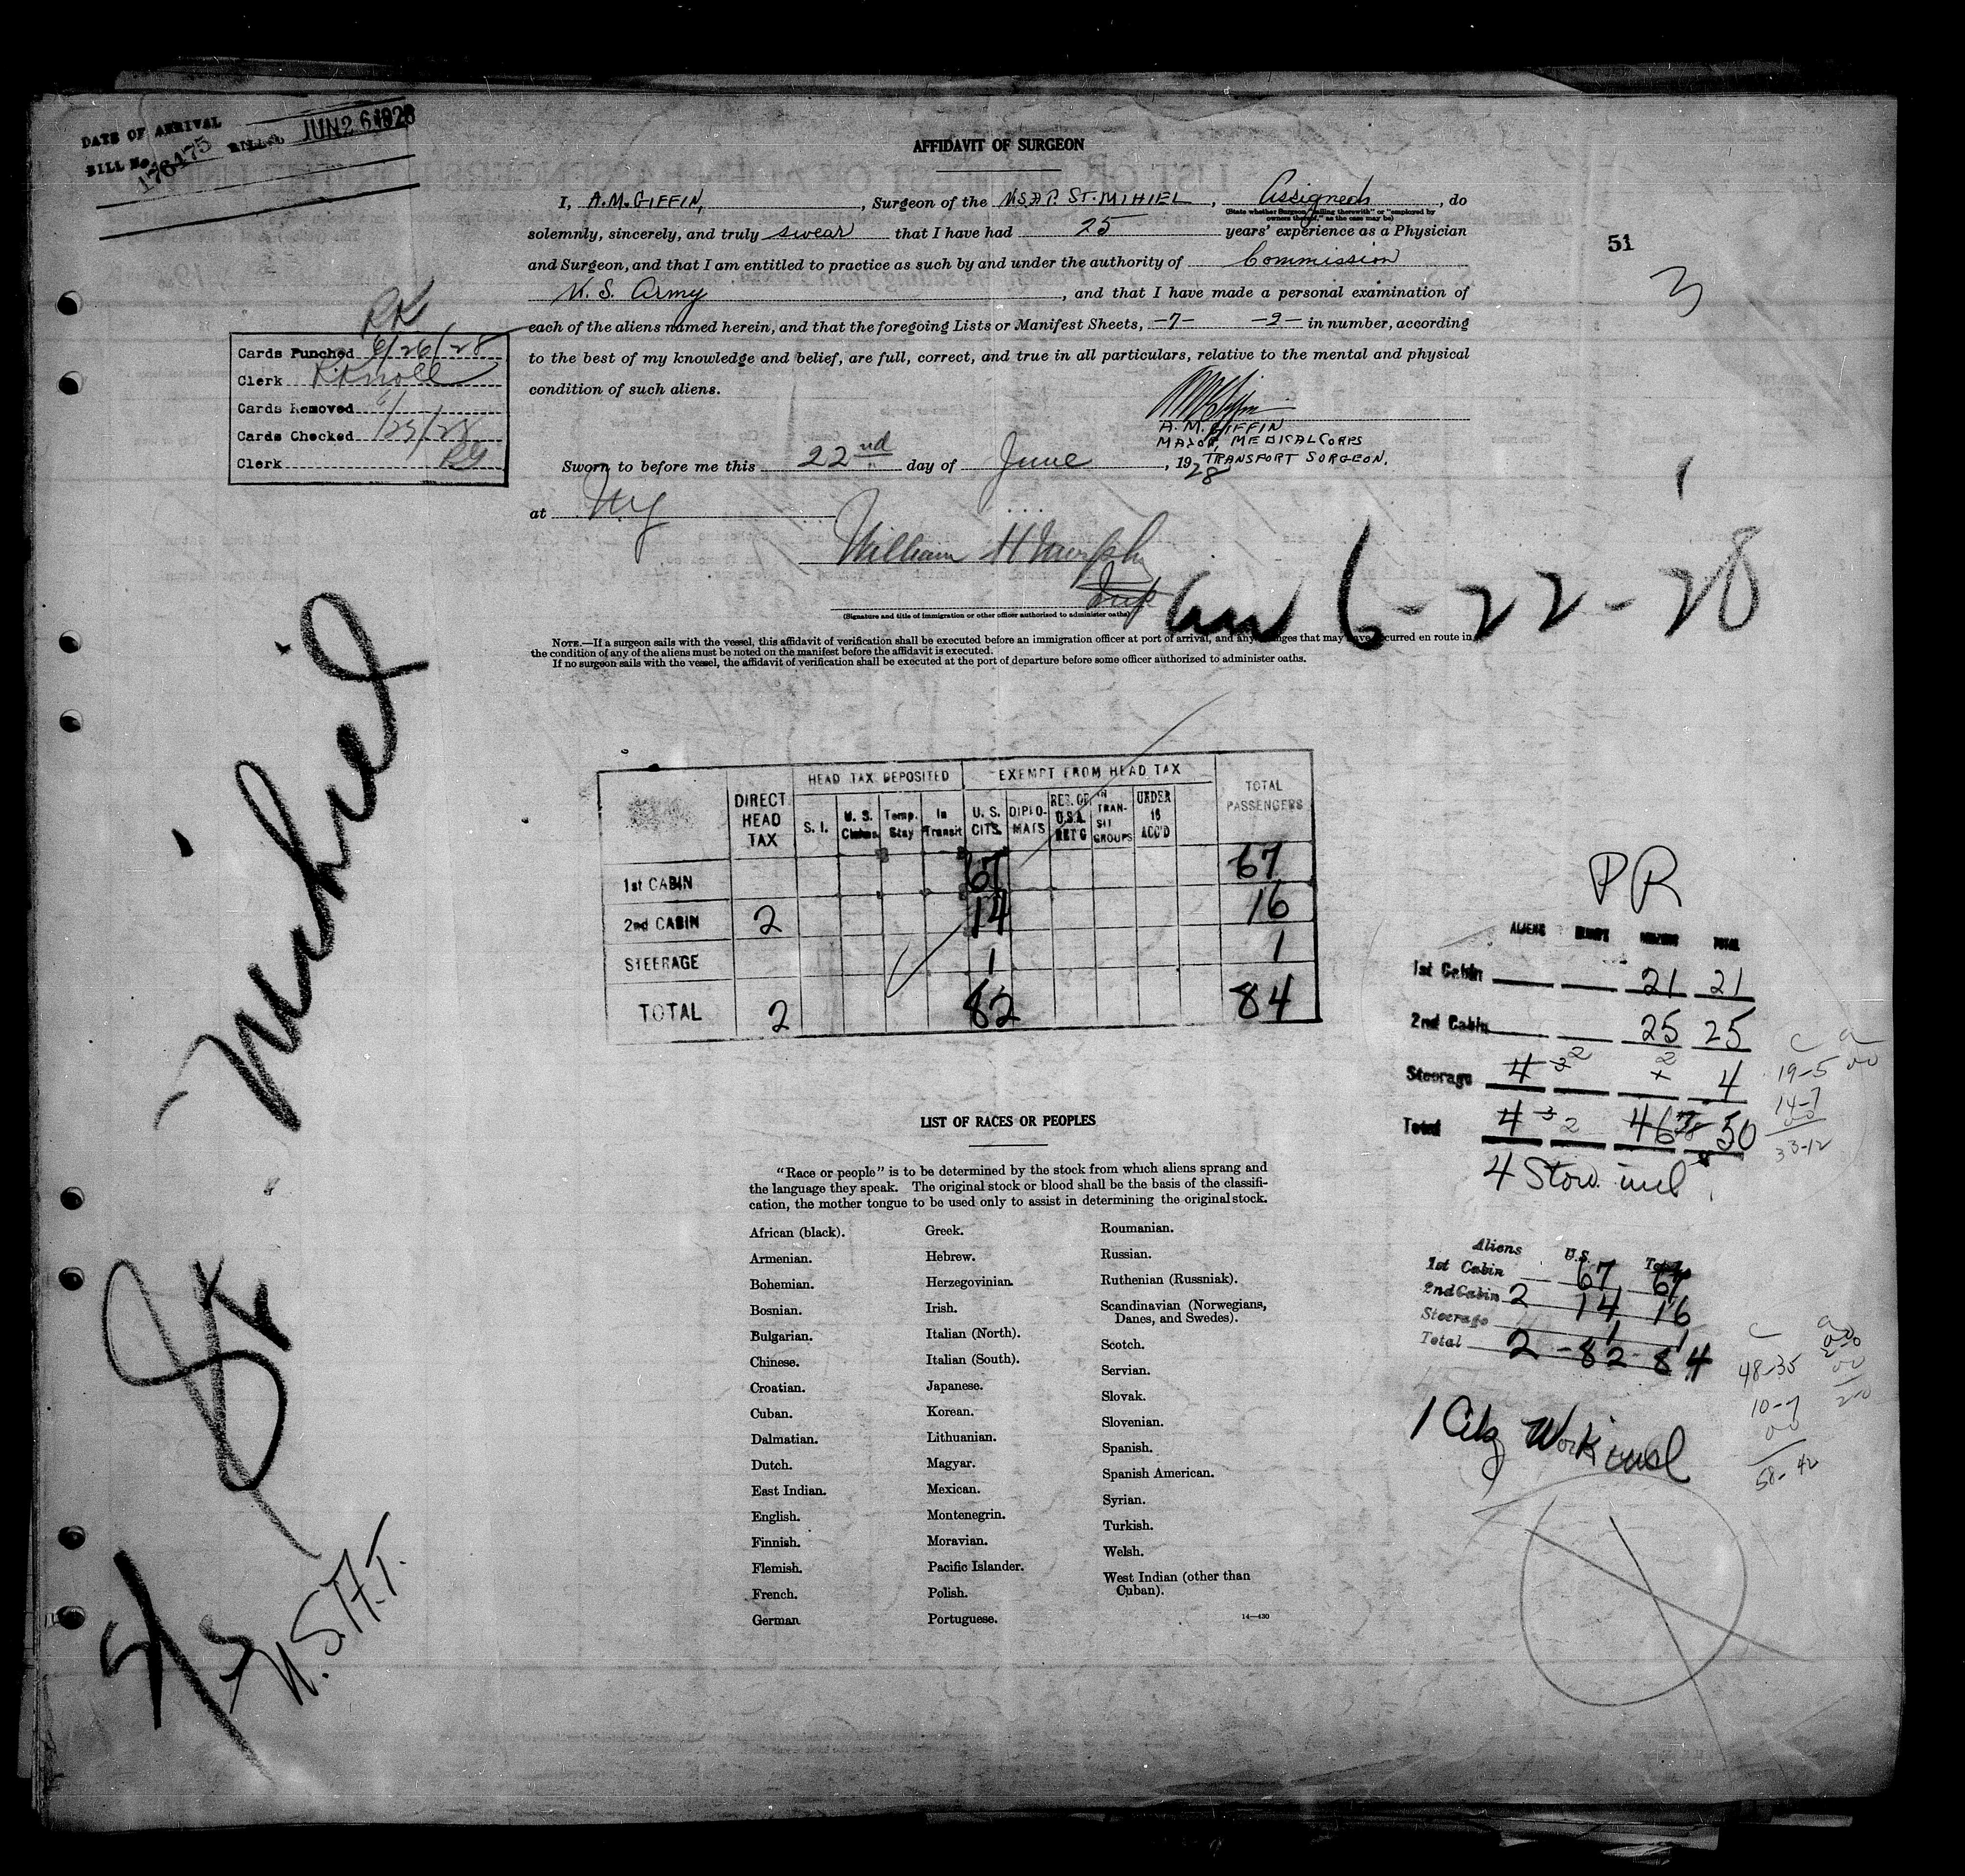 DATE OF ARRIVAL
BILL No. 176475 BILLED JUN 26 1928
AFFIDAVIT OF SURGEON
I, A.M. GIFFIN, , Surgeon of the U.S.A.T. ST. MIHIEL , Assigned , do
(State whether Surgeon "sailing therewith" or "employed by
owners thereof," as the case may be)
solemnly, sincerely, and truly swear that I have had 25 years' experience as a Physician
51
and Surgeon, and that I am entitled to practice as such by and under the authority of Commission
3
U.S. Army , and that I have made a personal examination of
each of the aliens named herein, and that the foregoing Lists or Manifest Sheets, -7- -9- in number, according
to the best of my knowledge and belief, are full, correct, and true in all particulars, relative to the mental and physical
condition of such aliens.
RK
Cards Punched 6/26/28
Clerk R.Knoll
Cards Removed
Cards Checked
Clerk
A. M. GIFFIN
MAJOR, MEDICAL CORPS
TRANSPORT SURGEON.
Sworn to before me this 22nd day of June , 1928
at NY
William H Murphy
Insp
6-22-28
(Signature and title of immigration or other officer authorized to administer oaths)
NOTE.—If a surgeon sails with the vessel, this affidavit of verification shall be executed before an immigration officer at port of arrival, and any changes that may have occurred en route in
the condition of any of the aliens must be noted on the manifest before the affidavit is executed.
If no surgeon sails with the vessel, the affidavit of verification shall be executed at the port of departure before some officer authorized to administer oaths.
St. Mihiel
U.S.A.T.
HEAD TAX DEPOSITED EXEMPT FROM HEAD TAX
DIRECT HEAD TAX S. I. U. S. Claims Temp. Stay In Transit U. S. CITS. DIPLO-MATS RES. OF U.S.A. RET'G IN TRAN-SIT GROUPS UNDER 16 ACC'D TOTAL PASSENGERS
1st CABIN 67 67
2nd CABIN 2 14 16
STEERAGE 1 1
TOTAL 2 82 84
PR
ALIENS TOTAL
1st Cabin 21 21
2nd Cabin 25 25
Steerage 4 3 2 2 4
Total 4 3 2 46 50
4 Stow. incl
C a
19-5 00
14-7
33-12
Aliens U.S. Totals
1st Cabin 67 67
2nd Cabin 2 14 16
Steerage 1 1
Total 2 - 82 - 84
48-35
10-7
00
58-42
1 Citz Work incl
LIST OF RACES OR PEOPLES
"Race or people" is to be determined by the stock from which aliens sprang and
the language they speak. The original stock or blood shall be the basis of the classifi-
cation, the mother tongue to be used only to assist in determining the original stock.
African (black).
Armenian.
Bohemian.
Bosnian.
Bulgarian.
Chinese.
Croatian.
Cuban.
Dalmatian.
Dutch.
East Indian.
English.
Finnish.
Flemish.
French.
German
Greek.
Hebrew.
Herzegovinian.
Irish.
Italian (North).
Italian (South).
Japanese.
Korean.
Lithuanian.
Magyar.
Mexican.
Montenegrin.
Moravian.
Pacific Islander.
Polish.
Portuguese.
Roumanian.
Russian.
Ruthenian (Russniak).
Scandinavian (Norwegians,
Danes, and Swedes).
Scotch.
Servian.
Slovak.
Slovenian.
Spanish.
Spanish American.
Syrian.
Turkish.
Welsh.
West Indian (other than
Cuban).
14—430